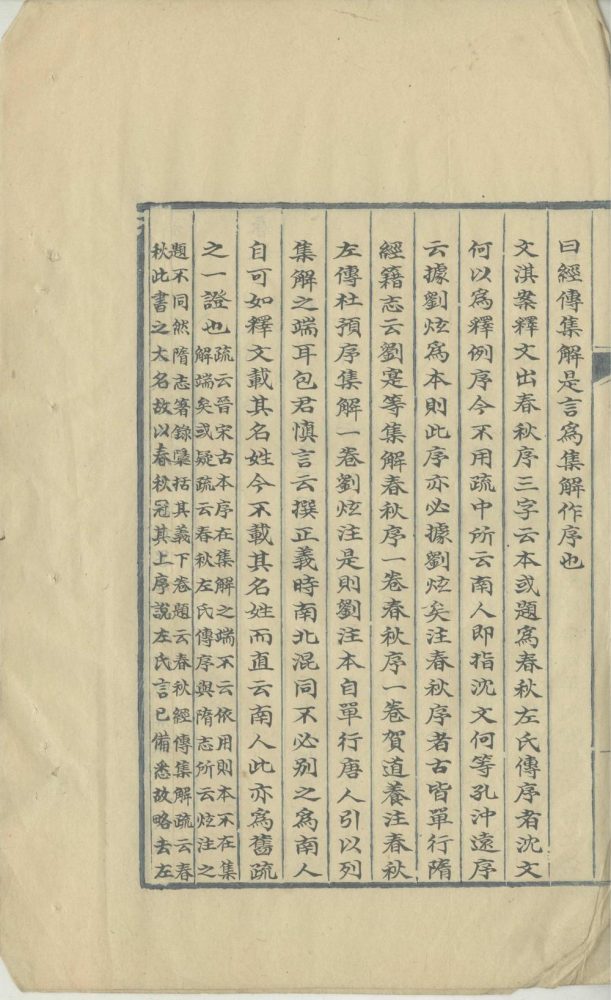 曰經傳集解是言爲集解作序也
文淇案釋文出春秋序三字云本或題爲春秋左氏傳序者沈文
何以爲釋例序今不用疏中所云南人即指沈文何等孔沖遠序
云據劉炫爲本則此序亦必據劉炫矣注春秋序者古皆單行隋
經籍志云劉寔等集解春秋序一卷春秋序一卷賀道養注春秋
左傳杜預序集解一卷劉炫注是則劉注本自單行唐人引以列
集解之端耳包君慎言云撰正義時南北混同不必别之爲南人
自可如釋文載其名姓今不載其名姓而直云南人此亦爲舊疏
之一證也
疏云晉宋古本序在集解之端不云依用則本不在集
解端矣或疑疏云春秋左氏傳序與隋志所云炫注之
題不同然隋志箸錄檃括其義下卷題云春秋經傳集解疏云春
秋此書之大名故以春秋冠其上序說左氏言已備悉故略去左